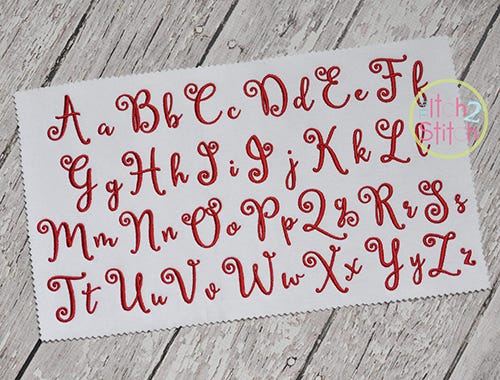 A a B b C c D d E e F f
G g H h I i J j K k L l
M m N n O o P p Q q R r S s
T t U u V v W w X x Y y Z z
Itch 2 Stitch